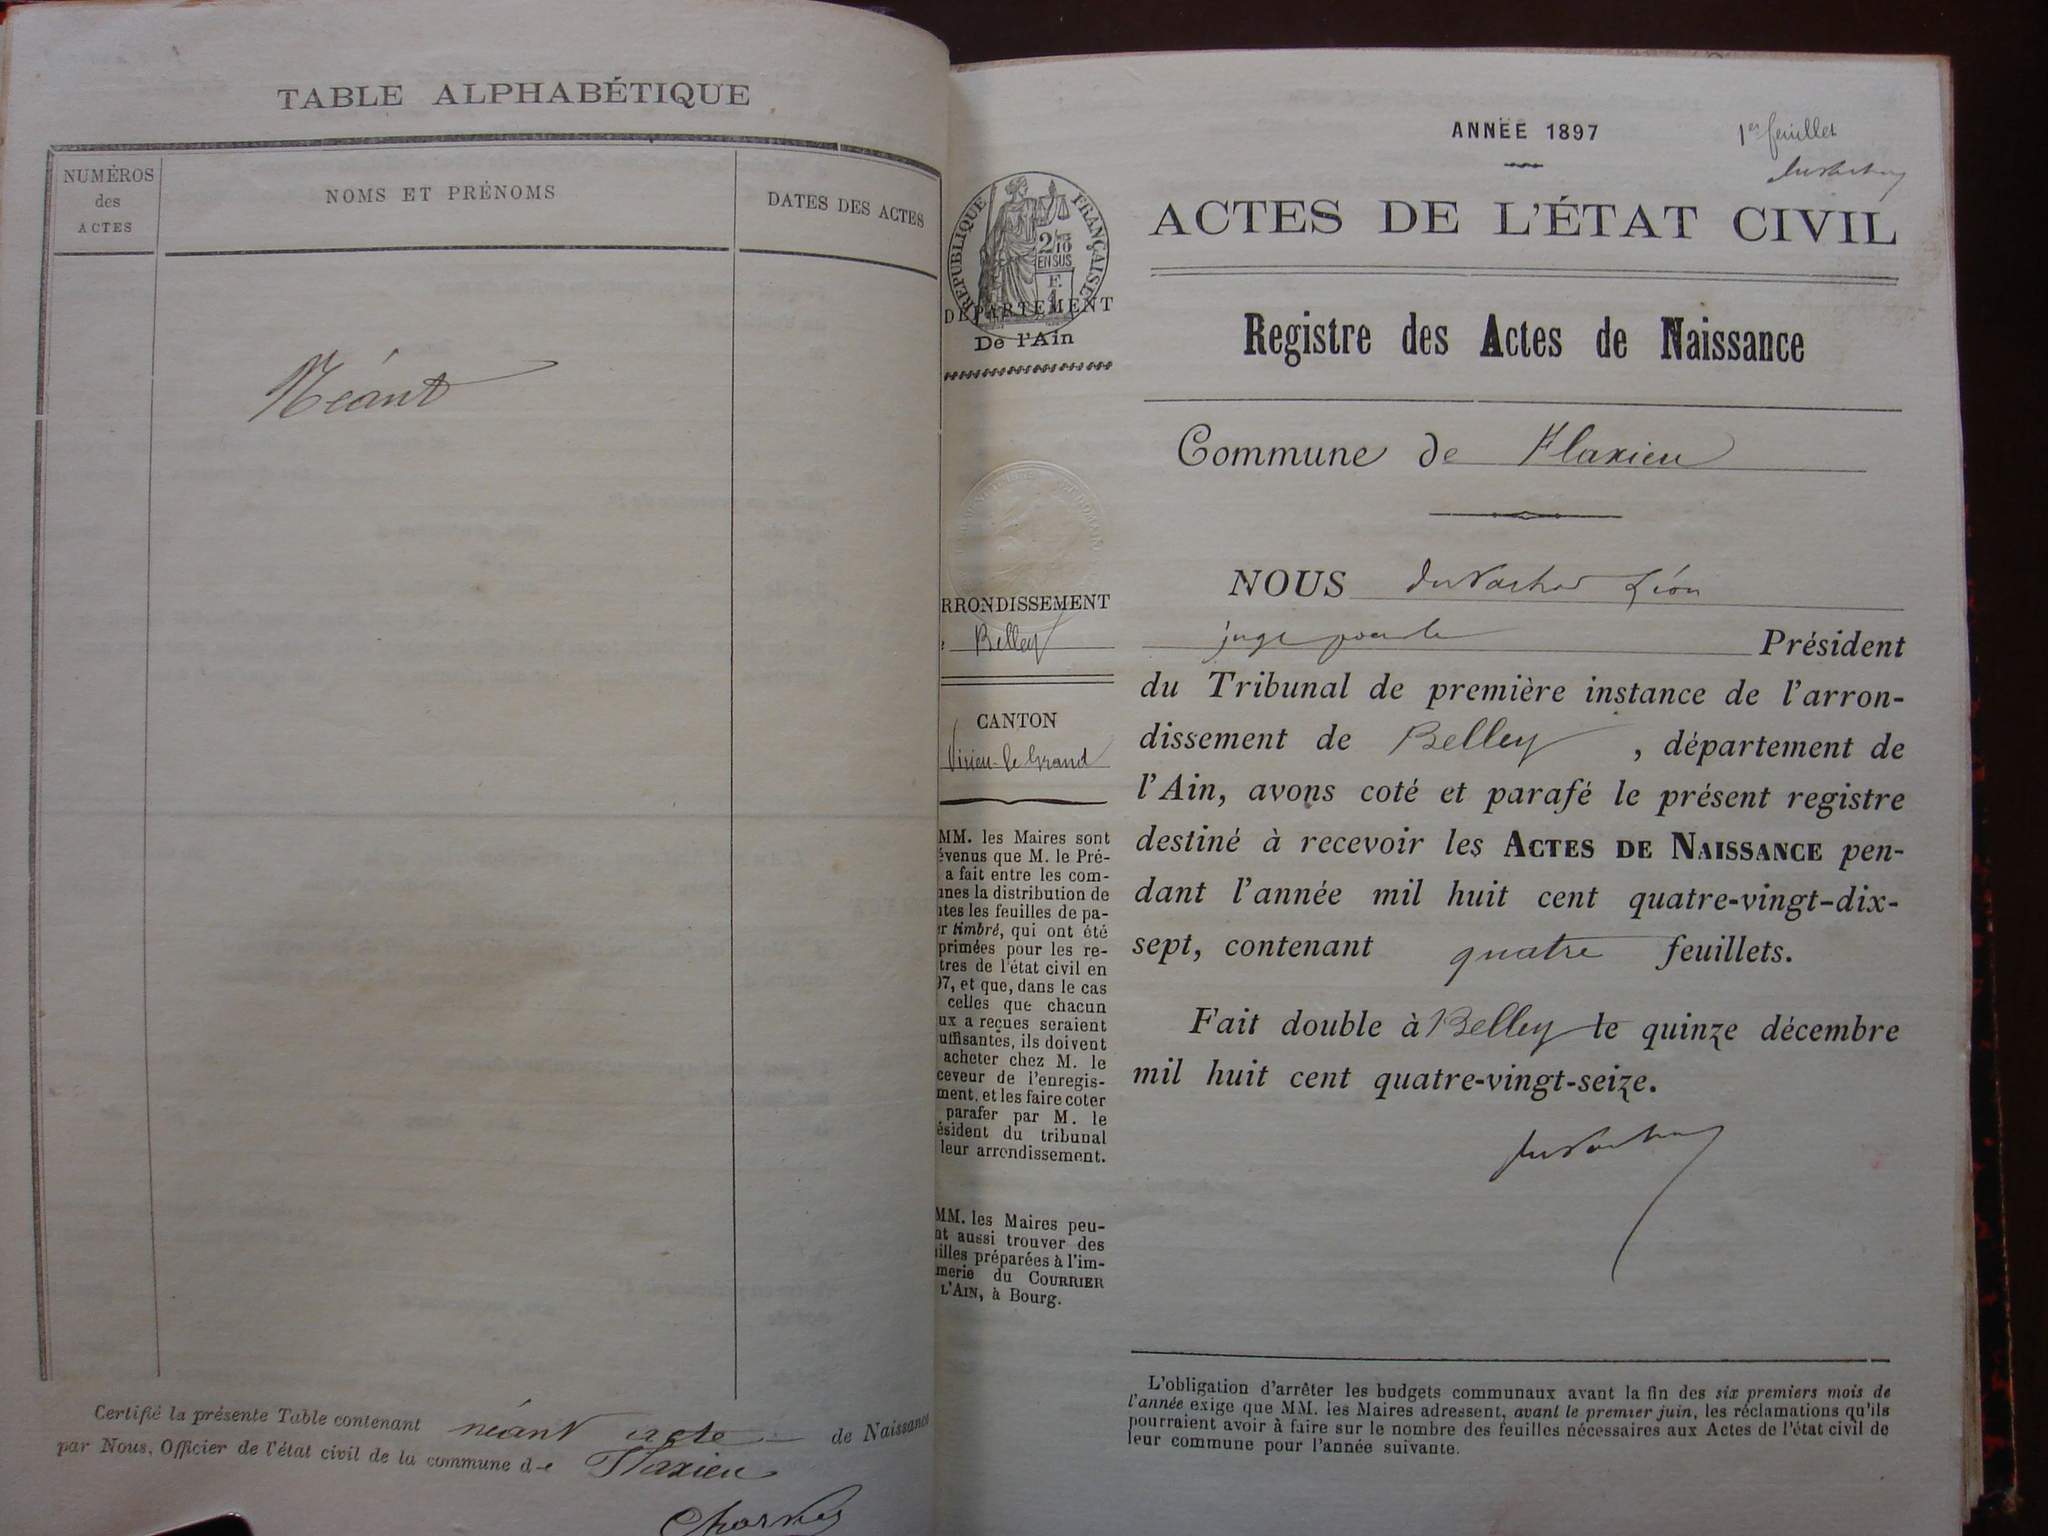 TABLE ALPHABÉTIQUE
NUMÉROS
des
ACTES
NOMS ET PRÉNOMS
DATES DES ACTES
Néant
Certifié la présente Table contenant néant acte de Naissance
par Nous, Officier de l'état civil de la commune de Flaxieu
ANNÉE 1897
1er feuillet
RÉPUBLIQUE FRANÇAISE
2/10
EN SUS
F.
1
DÉPARTEMENT
De l'Ain
ACTES DE L'ÉTAT CIVIL
Registre des Actes de Naissance
Commune de Flaxieu
RRONDISSEMENT
Belley
CANTON
Virieu-le-Grand
MM. les Maires sont
évenus que M. le Pré-
a fait entre les com-
unes la distribution de
utes les feuilles de pa-
er timbré, qui ont été
primées pour les re-
tres de l'état civil en
97, et que, dans le cas
celles que chacun
ux a reçues seraient
uffisantes, ils doivent
acheter chez M. le
ceveur de l'enregis-
ment, et les faire coter
parafer par M. le
ésident du tribunal
leur arrondissement.
MM. les Maires peu-
nt aussi trouver des
uilles préparées à l'im-
merie du COURRIER
L'AIN, à Bourg.
NOUS Léon
juge Président
du Tribunal de première instance de l'arron-
dissement de Belley, département de
l'Ain, avons coté et parafé le présent registre
destiné à recevoir les ACTES DE NAISSANCE pen-
dant l'année mil huit cent quatre-vingt-dix-
sept, contenant quatre feuillets.
Fait double à Belley le quinze décembre
mil huit cent quatre-vingt-seize.
L'obligation d'arrêter les budgets communaux avant la fin des six premiers mois de
l'année exige que MM. les Maires adressent, avant le premier juin, les réclamations qu'ils
pourraient avoir à faire sur le nombre des feuilles nécessaires aux Actes de l'état civil de
leur commune pour l'année suivante.